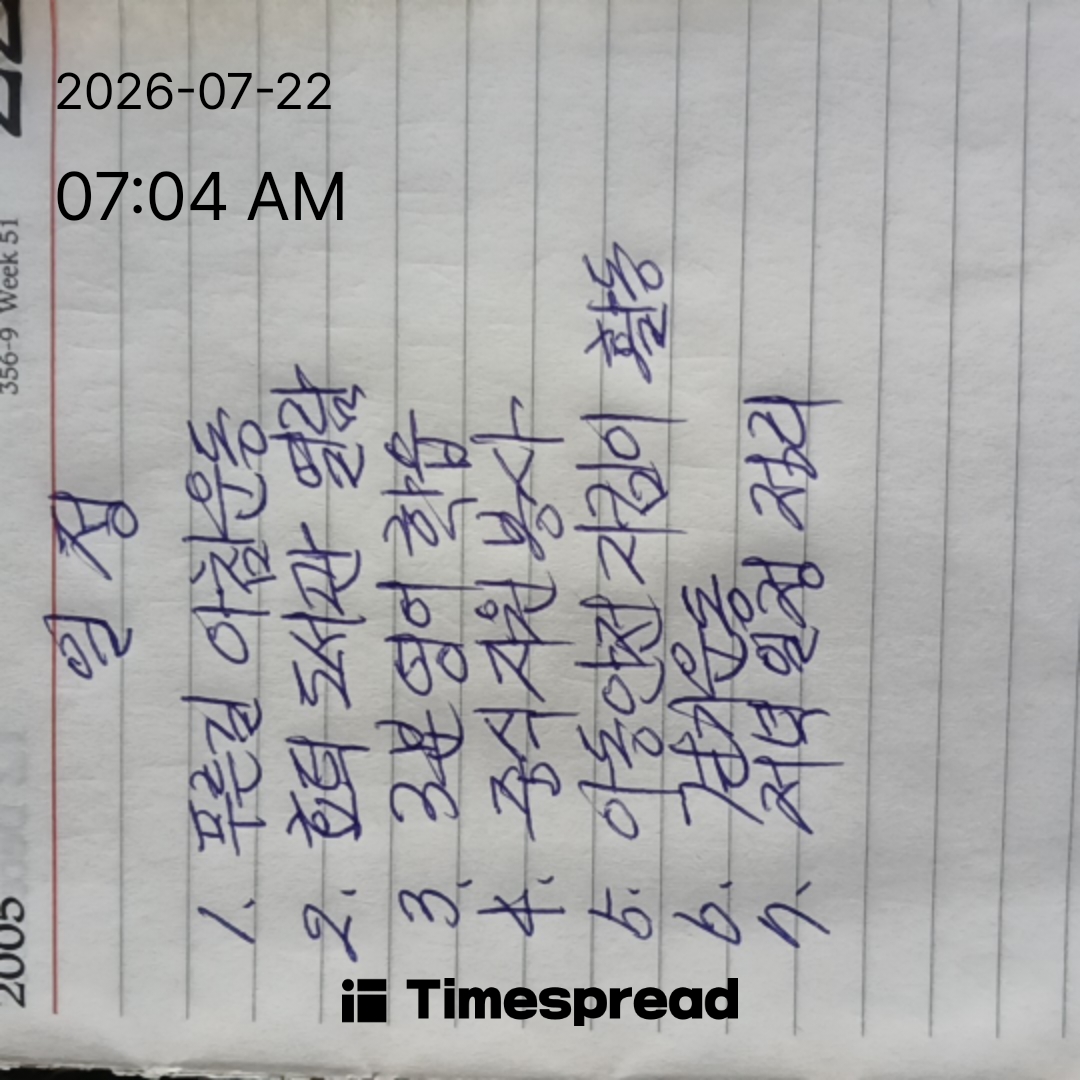 2026-07-22
07:04 AM
2005
356-9 Week 51
일 정
1. 푸른길 아침운동
2. 한페 도서관 열람
3. 3분 영어 학습
4. 중식 자원 봉사
5. 아동안전 지킴이 활동
6. 걷기운동
7. 저녁 일정 정리
Timespread